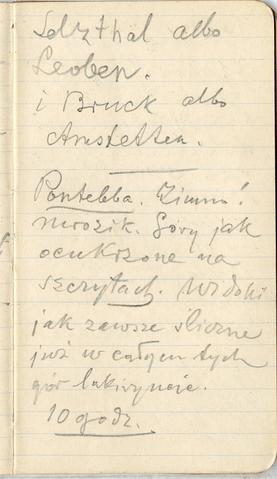 Selzthal albo
Leoben.
i Bruck albo
Amstetten.
Pontebba. Zimno!
mrozik. Góry jak
ocukrzone na
szczytach. Widoki
jak zawsze śliczne
już w całym tych
gór
10 godz.